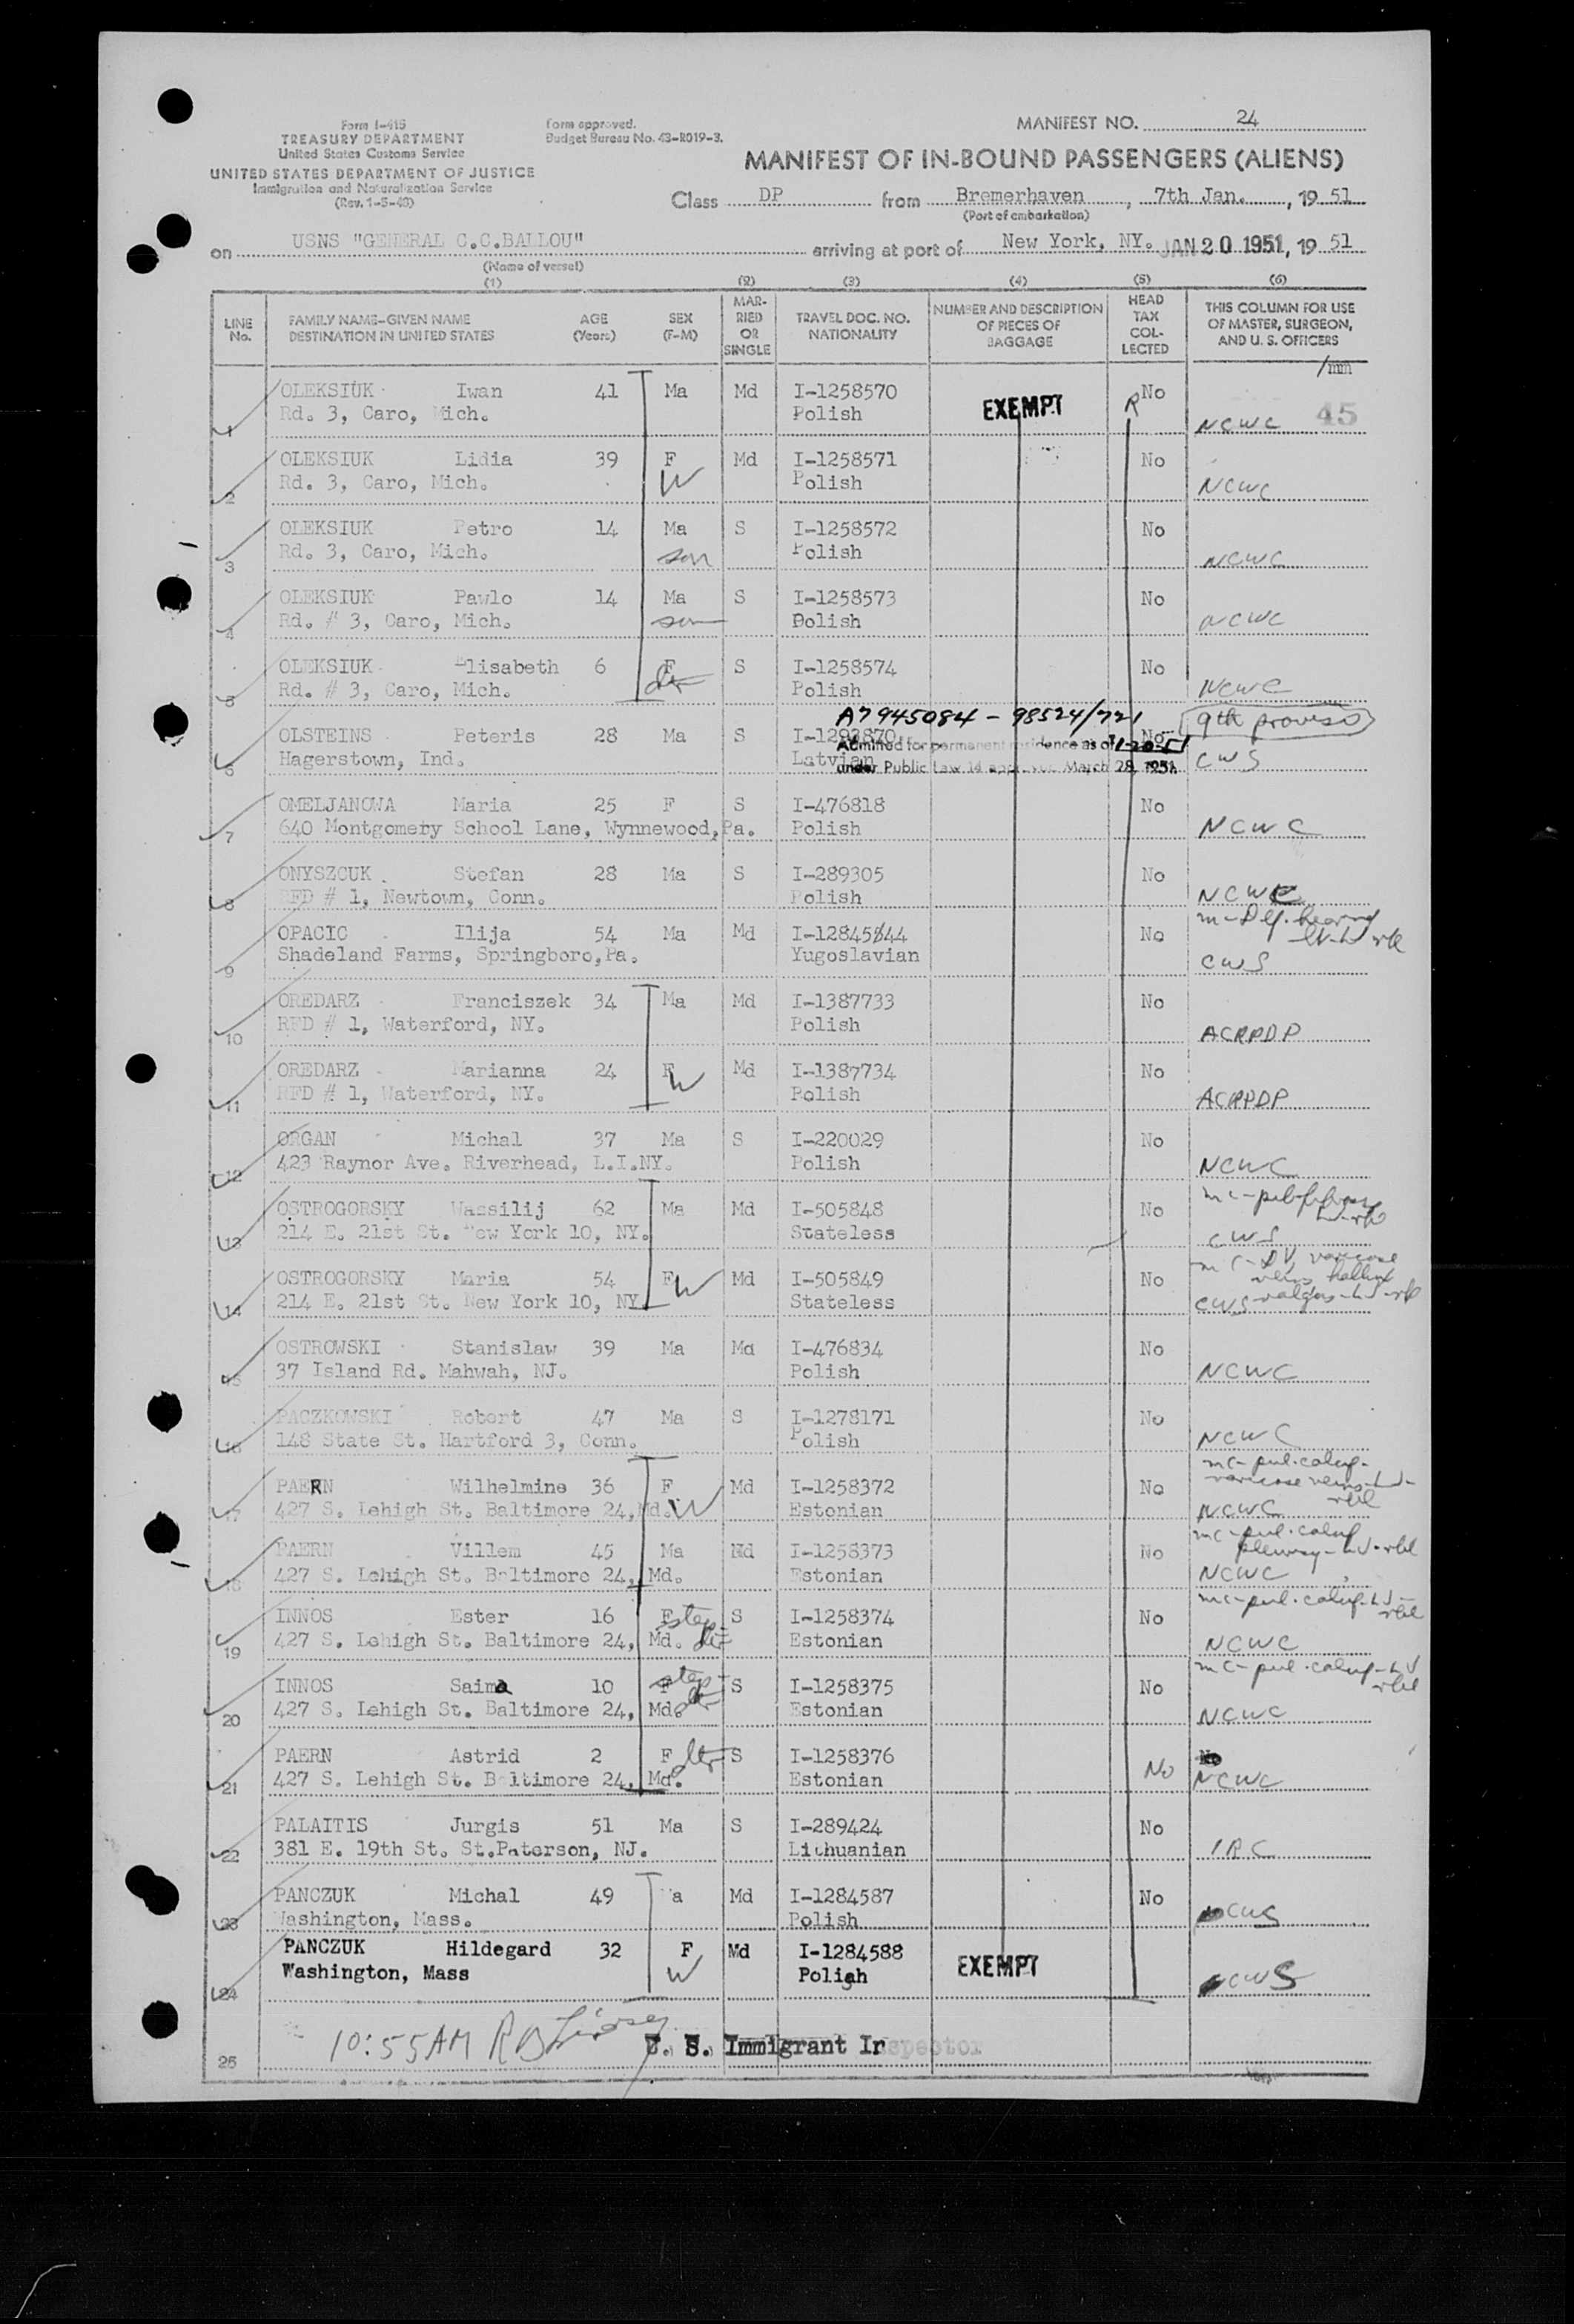 Form I-415
TREASURY DEPARTMENT
United States Customs Service
UNITED STATES DEPARTMENT OF JUSTICE
Immigration and Naturalization Service
(Rev. 1-5-48)
Form approved.
Budget Bureau No. 43-R019-3.
MANIFEST NO. 24
MANIFEST OF IN-BOUND PASSENGERS (ALIENS)
Class DP from Bremerhaven, 7th Jan., 19 51
(Port of embarkation)
on USNS "GENERAL C.C.BALLOU" arriving at port of New York, NY. JAN 20 1951, 19 51
(Name of vessel)
(1) (2) (3) (4) (5) (6)
LINE No. FAMILY NAME-GIVEN NAME DESTINATION IN UNITED STATES AGE (Years) SEX (F-M) MARRIED OR SINGLE TRAVEL DOC. NO. NATIONALITY NUMBER AND DESCRIPTION OF PIECES OF BAGGAGE HEAD TAX COLLECTED THIS COLUMN FOR USE OF MASTER, SURGEON, AND U. S. OFFICERS
/mm
OLEKSIUK Iwan 41 Ma Md I-1258570 EXEMPT R No
1 Rd. 3, Caro, Mich. Polish NCWC 45
OLEKSIUK Lidia 39 F Md I-1258571 No
2 Rd. 3, Caro, Mich. W Polish NCWC
OLEKSIUK Petro 14 Ma S I-1258572 No
3 Rd. 3, Caro, Mich. son Polish NCWC
OLEKSIUK Pawlo 14 Ma S I-1258573 No
4 Rd. # 3, Caro, Mich. son Polish NCWC
OLEKSIUK Elisabeth 6 F S I-1258574 No
5 Rd. # 3, Caro, Mich. dtr Polish NCWC
A7945084 - 98524/721 9th proviso
OLSTEINS Peteris 28 Ma S I-1293870 No
Admitted for permanent residence as of 1-20-51
6 Hagerstown, Ind. Latvian CWS
under Public Law 14 approved March 28, 1951
OMELJANOWA Maria 25 F S I-476818 No
7 640 Montgomery School Lane, Wynnewood, Pa. Polish NCWC
ONYSZCUK Stefan 28 Ma S I-289305 No
8 RFD # 1, Newtown, Conn. Polish NCWC
OPACIC Ilija 54 Ma Md I-12845844 No hearing
9 Shadeland Farms, Springboro, Pa. Yugoslavian CWS
OREDARZ Franciszek 34 Ma Md I-1387733 No
10 RFD # 1, Waterford, NY. Polish ACRPDP
OREDARZ Marianna 24 F W Md I-1387734 No
11 RFD # 1, Waterford, NY. Polish ACRPDP
ORGAN Michal 37 Ma S I-220029 No
12 423 Raynor Ave. Riverhead, L.I.NY. Polish NCWC
OSTROGORSKY Wassilij 62 Ma Md I-505848 No
13 214 E. 21st St. New York 10, NY. Stateless CWS
OSTROGORSKY Maria 54 F W Md I-505849 No varicose veins hallux valgus
14 214 E. 21st St. New York 10, NY Stateless CWS
OSTROWSKI Stanislaw 39 Ma Md I-476834 No
15 37 Island Rd. Mahwah, NJ. Polish NCWC
PACZKOWSKI Robert 47 Ma S I-1278171 No
16 148 State St. Hartford 3, Conn. Polish NCWC
PAERN Wilhelmine 36 F Md I-1258372 No mc-pul.calcif- varicose veins
17 427 S. Lehigh St. Baltimore 24, Md. W Estonian NCWC
PAERN Villem 45 Ma Md I-1258373 No mc-pul.calcif pleurisy
18 427 S. Lehigh St. Baltimore 24, Md. Estonian NCWC
INNOS Ester 16 F step S I-1258374 No mc-pul.calcif
19 427 S. Lehigh St. Baltimore 24, Md. dtr Estonian NCWC
INNOS Saima 10 F step S I-1258375 No mc-pul.calcif
20 427 S. Lehigh St. Baltimore 24, Md. dtr Estonian NCWC
PAERN Astrid 2 F dtr S I-1258376 No
21 427 S. Lehigh St. Baltimore 24, Md. Estonian No NCWC
PALAITIS Jurgis 51 Ma S I-289424 No
22 381 E. 19th St. St.Paterson, NJ. Lithuanian IRC
PANCZUK Michal 49 Ma Md I-1284587 No
23 Washington, Mass. Polish CWS
PANCZUK Hildegard 32 F Md I-1284588 EXEMPT
24 Washington, Mass W Polish CWS
10:55AM
U. S. Immigrant Inspector
25